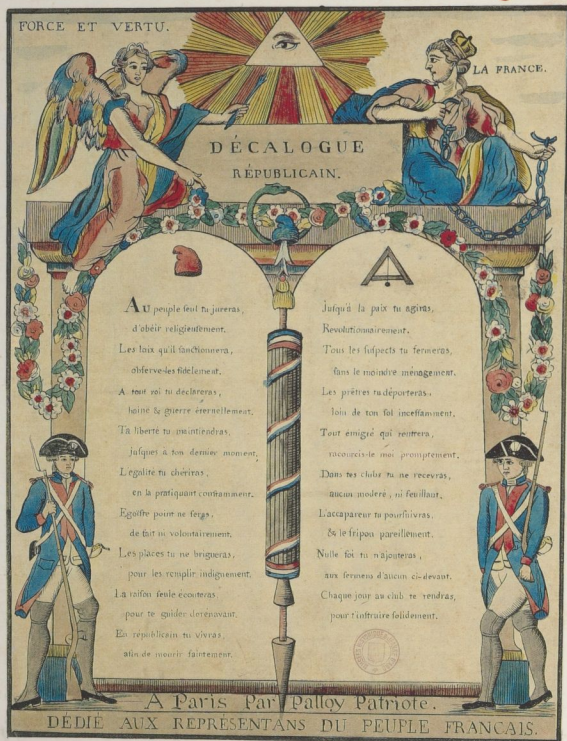 FORCE ET VERTU.
LA FRANCE.
DÉCALOGUE
RÉPUBLICAIN.
AU peuple seul tu jureras,
d'obéir religieusement.
Les loix qu'il sanctionnera,
observe-les fidelement.
A tout roi tu déclareras,
haine & guerre éternellement.
Ta liberté tu maintiendras,
jusques à ton dernier moment,
L'égalité tu chériras,
en la pratiquant constamment.
Egoïste point ne seras,
de fait ni volontairement.
Les places tu ne brigueras,
pour les remplir indignement.
La raison seule écouteras
pour te guider dorenavant.
En républicain tu vivras,
afin de mourir saintement.
Jusqu'à la paix tu agiras,
Revolutionnairement.
Tous les suspects tu fermeras,
sans le moindre ménagement.
Les prêtres tu déporteras,
loin de ton sol incessamment.
Tout émigré qui rentrera,
racourcis-le moi promptement.
Dans tes clubs tu ne recevras,
aucun modéré, ni feuillant.
L'accapareur tu poursuivras,
& le fripon pareillement.
Nulle foi tu n'ajouteras,
aux sermens d'aucun ci-devant.
Chaque jour au club te rendras,
pour t'instruire solidement.
A Paris Par Palloy Patriote.
DÉDIÉ AUX REPRÉSENTANS DU PEUPLE FRANCAIS.